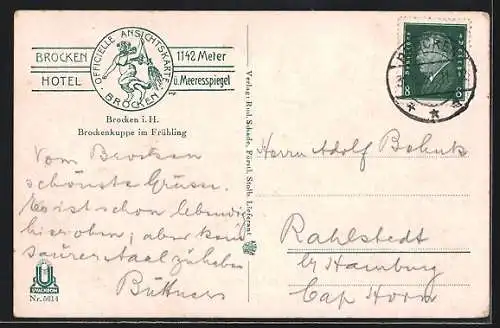 BROCKEN
HOTEL
OFFICIELLE ANSICHTSKARTE
BROCKEN
1142 Meter
ü. Meeresspiegel
Brocken i. H.
Brockenkuppe im Frühling
Vom Brocken
schönste Grüsse.
Es ist schon lebendig
hier oben; aber kein
saurer Aal zu haben
Büttners
UVACHROM
Nr. 5614
Verlag: Rud. Schade, Fürstl. Stolb. Lieferant
BROCKEN
8 8
Herrn Adolf
Rahlstedt
by Hamburg
Cap Horn